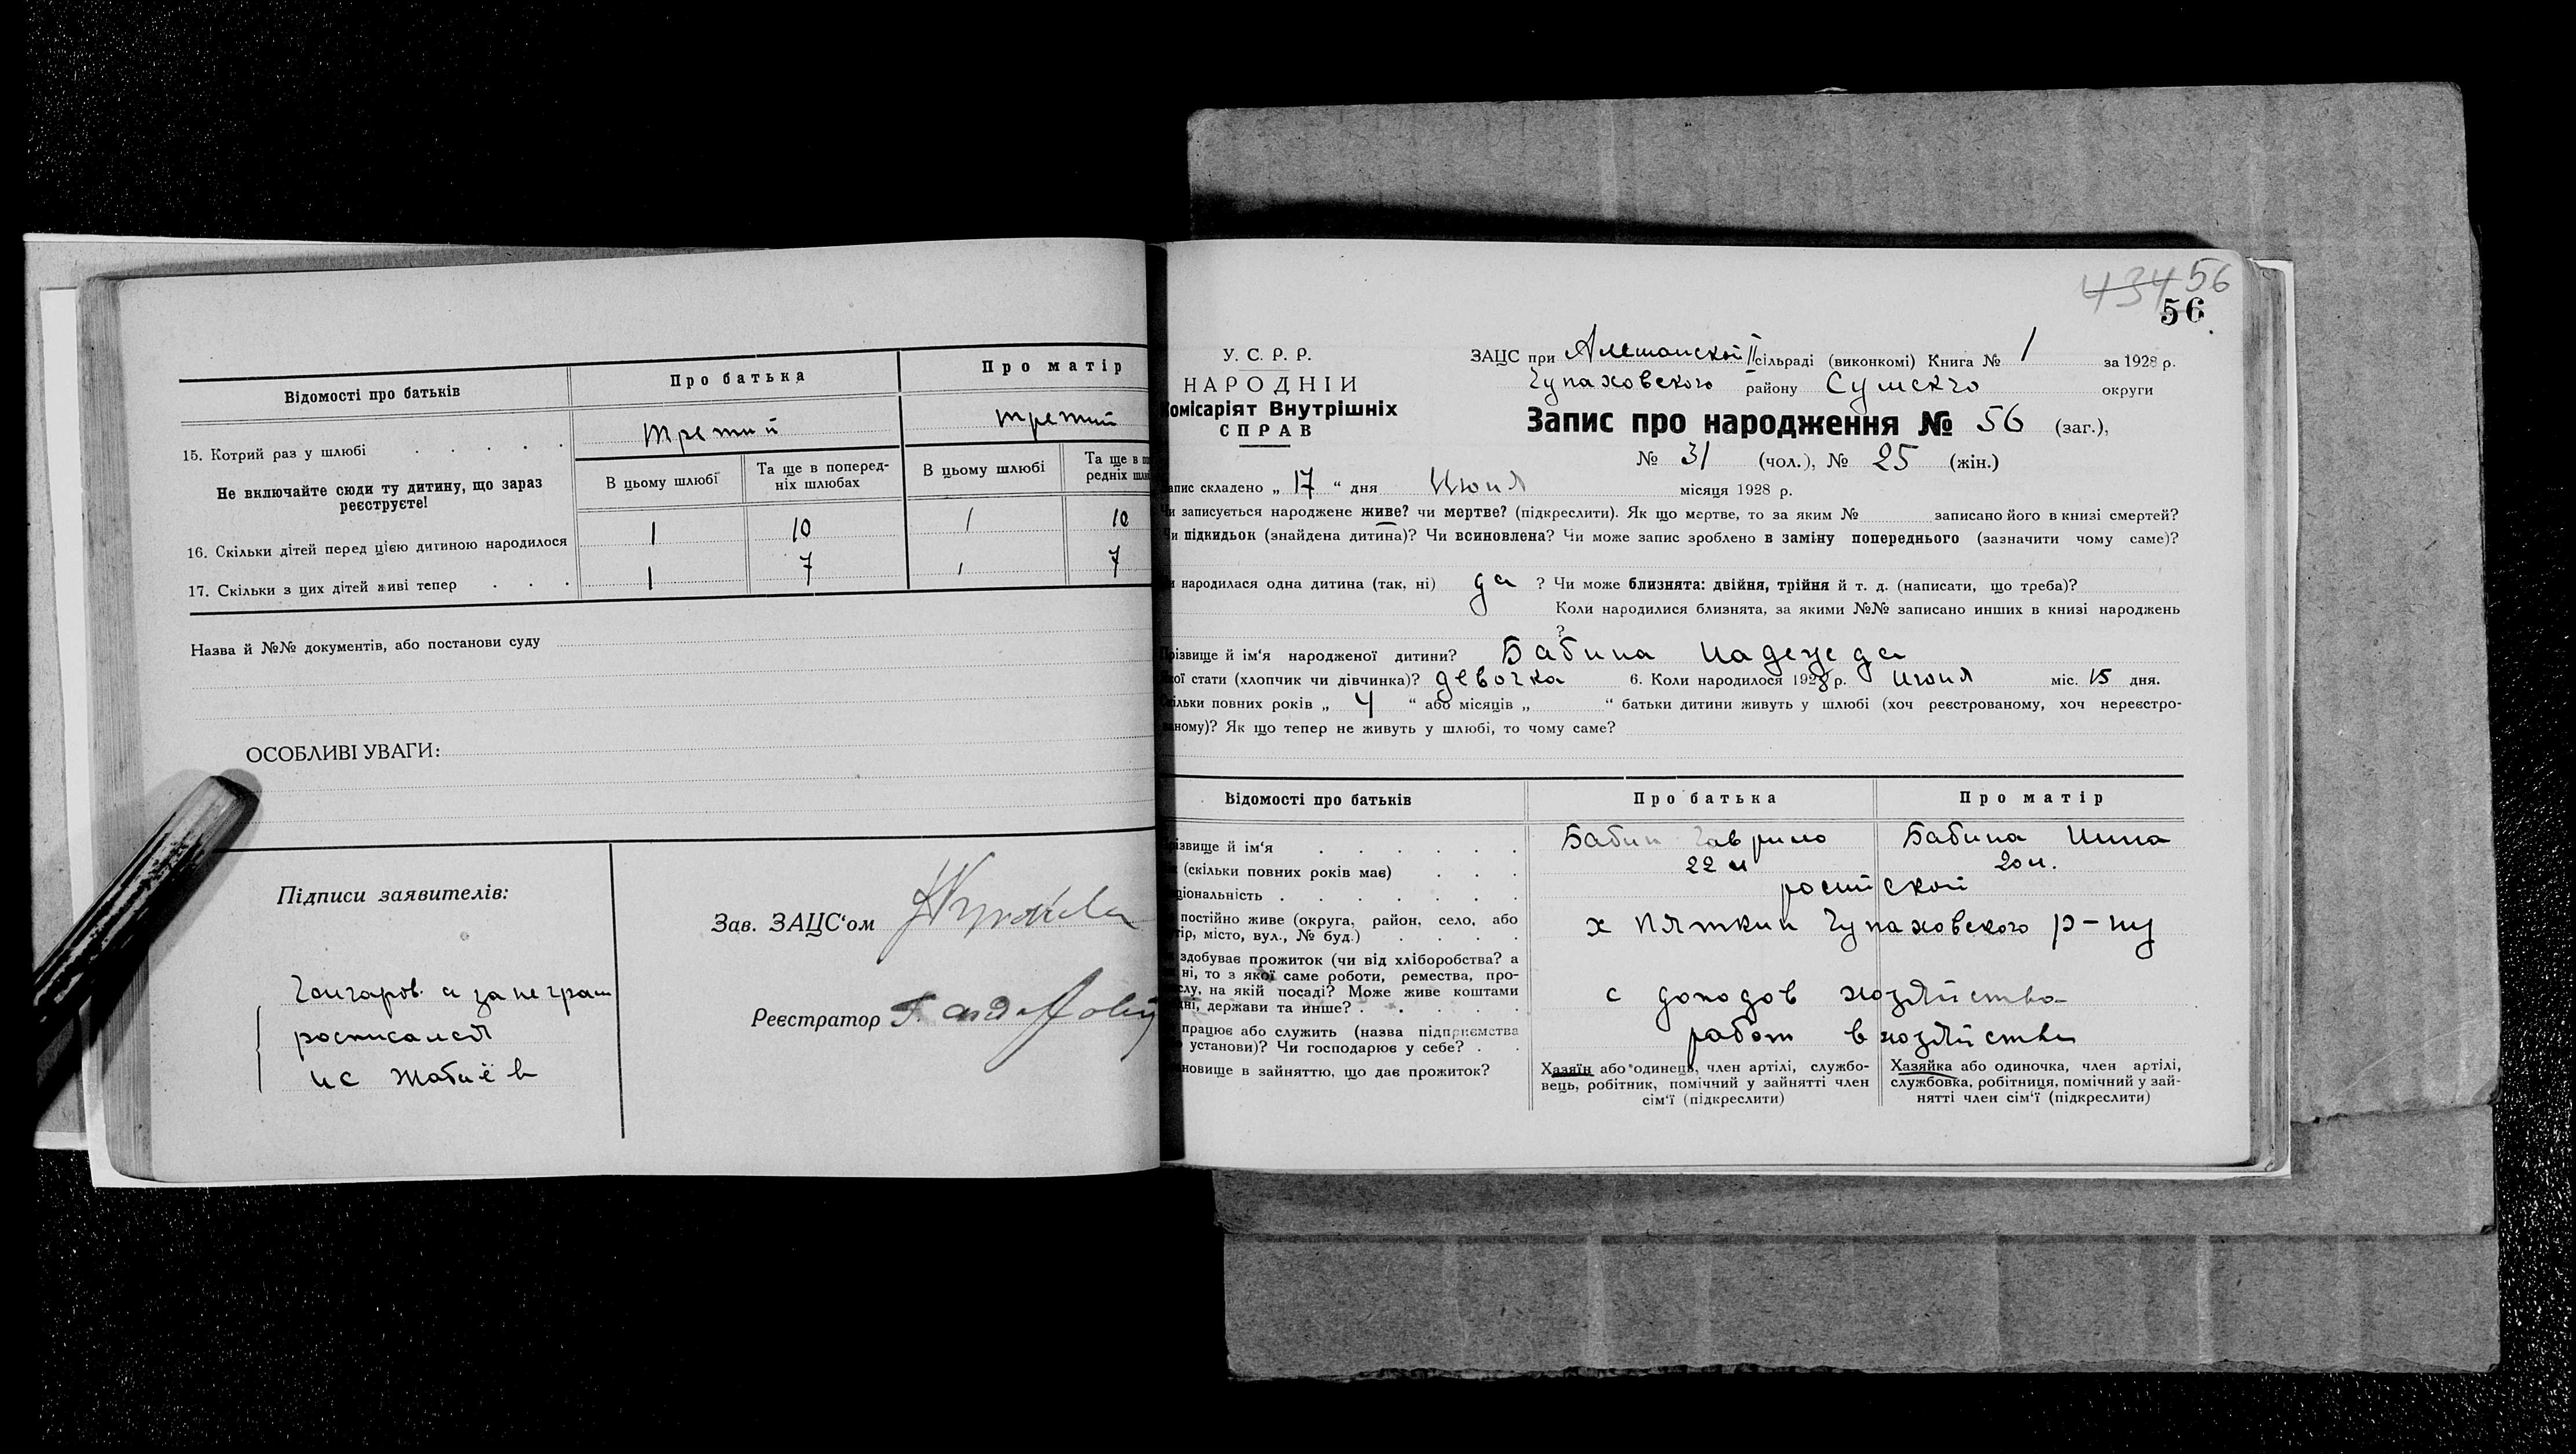 Відомості про батьків
Про батька
Про матір
15. Котрий раз у шлюбі . . . .
третий
третий
Не включайте сюди ту дитину, що зараз реєструєте!
В цьому шлюбі
Та ще в поперед-
ніх шлюбах
В цьому шлюбі
Та ще в
редніх
16. Скільки дітей перед цією дитиною народилося
1 10 1 10
17. Скільки з цих дітей живі тепер . . .
1 7 1 7
Назва й №№ документів, або постанови суду
ОСОБЛИВІ УВАГИ:
Підписи заявителів:
за неграм
росписался
Зав. ЗАЦС'ом
Реєстратор
43456
56
У. С. Р. Р.
НАРОДНІЙ
омісаріят Внутрішніх
СПРАВ
ЗАЦС при Алешанской II сільраді (виконкомі) Книга № 1 за 1928 р.
Чупаховского району Сумскго округи
Запис про народження № 56 (заг.),
№ 31 (чол.), № 25 (жін.)
апис складено „ 17 “ дня Июля місяця 1928 р.
и записується народжене живе? чи мертве? (підкреслити). Як що мертве, то за яким № записано його в книзі смертей?
и підкидьок (знайдена дитина)? Чи всиновлена? Чи може запис зроблено в заміну попереднього (зазначити чому саме)?
и народилася одна дитина (так, ні) да ? Чи може близнята: двійня, трійня й т. д. (написати, що треба)?
Коли народилися близнята, за якими №№ записано инших в книзі народжень
?
різвище й ім'я народженої дитини? Бабина Надежда
кої стати (хлопчик чи дівчинка)? девочка 6. Коли народилося 1928 р. Июля міс. 15 дня.
кільки повних років „ 4 “ або місяців „ “ батьки дитини живуть у шлюбі (хоч реєстрованому, хоч нереєстро-
ваному)? Як що тепер не живуть у шлюбі, то чому саме?
Відомості про батьків
Про батька
Про матір
різвище й ім'я . . . . . .
Бабин Гаврило
Бабина Нина
(скільки повних років має) . . .
22 л
20 л.
ціональність . . . . . . .
росийской
постійно живе (округа, район, село, або
тір, місто, вул., № буд.) . . . .
х Пяткин Чупаховского р-ну
здобуває прожиток (чи від хліборобства? а
ні, то з якої саме роботи, ремества, про-
слу, на якій посаді? Може живе коштами
дні, держави та инше? . . . . .
с доходов хозяйства
працює або служить (назва підприємства
установи)? Чи господарює у себе? . .
работ в хозяйстве
новище в зайняттю, що дає прожиток?
Хазяїн або одинець, член артілі, службо-
вець, робітник, помічний у зайнятті член
сім'ї (підкреслити)
Хазяйка або одиночка, член артілі,
службовка, робітниця, помічний у зай-
нятті член сім'ї (підкреслити)